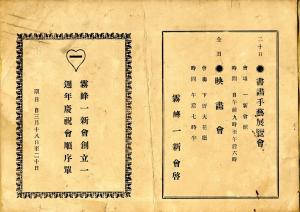 二十日
●書畫手藝展覽會
會場 一新會館
時間 自午前九時至午后六時
仝日
●映畫會
會場 下厝大花廳
時間 午后七時半
霧峰一新會啓
一
霧峰一新會創立一
週年慶祝會順序單
期日 自三月十八日至二十日